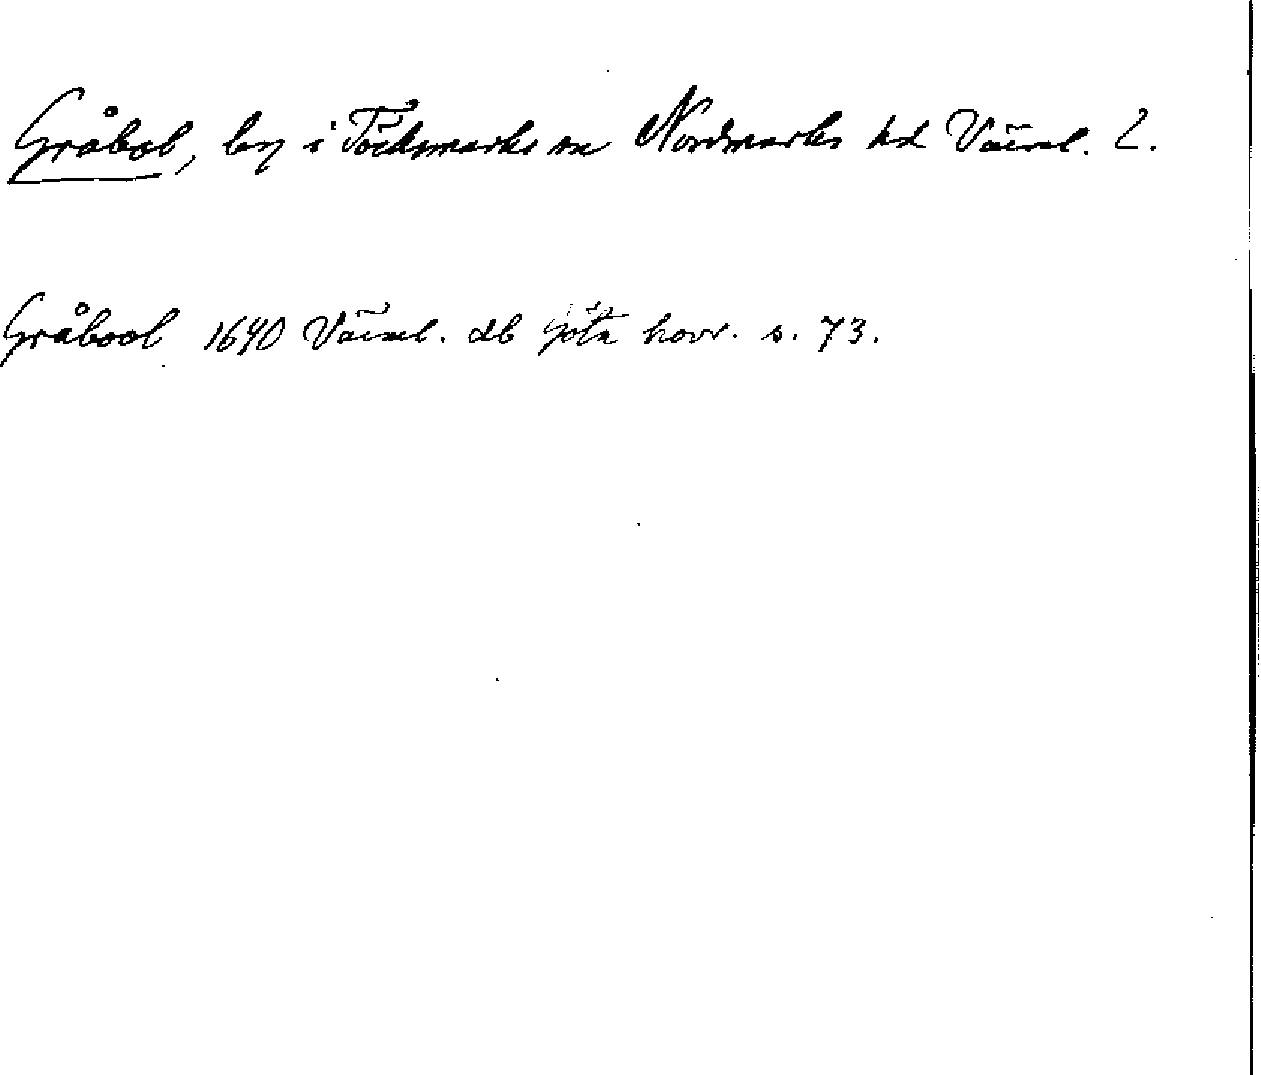 Gråbol, by i Töcksmarks sn Nordmarks hd Värml. L.
Gråbool 1640 Värml. db Göta hovr. s. 73.